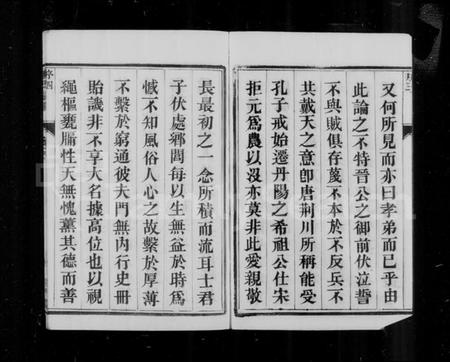 又何所見而亦曰孝弟而已乎由
此論之不特晉公之御前伏泣誓
不與賊俱存蔑不本於不反兵不
共戴天之意卽唐荊川所稱能受
孔子戒始遷丹陽之希祖公仕宋
拒元爲農以沒亦莫非此愛親敬
長最初之一念所積而流耳士君
子伏處鄉閭每以生無益於時爲
慽不知風俗人心之故繫於厚薄
不繫於窮通彼大門無內行史冊
貽譏非不享大名據高位也以視
繩樞甕牖性天無愧薰其德而善
序四